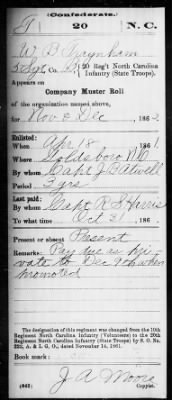 (Confederate.)
T 20 N. C.
W. D. Traynham
5 Sgt, Co. B, 20 Reg't North Carolina
Infantry (State Troops).
Appears on
Company Muster Roll
of the organization named above,
for Nov & Dec, 186
Enlisted:
When Apr 18, 1861.
Where Goldsboro N.C.
By whom Capt J. Atwell
Period 3 yrs
Last paid:
By whom Capt R. S. Harris
To what time Oct 31, 186
Present or absent Present
Remarks: Pay due as pri-
vate to Dec 9th when
promoted
The designation of this regiment was changed from the 10th
Regiment North Carolina Infantry (Volunteers) to the 20th
Regiment North Carolina Infantry (State Troops) by S. O. No.
222, A. & I. G. O., dated November 14, 1861.
Book mark:
J. A. Moore
(642) Copyist.